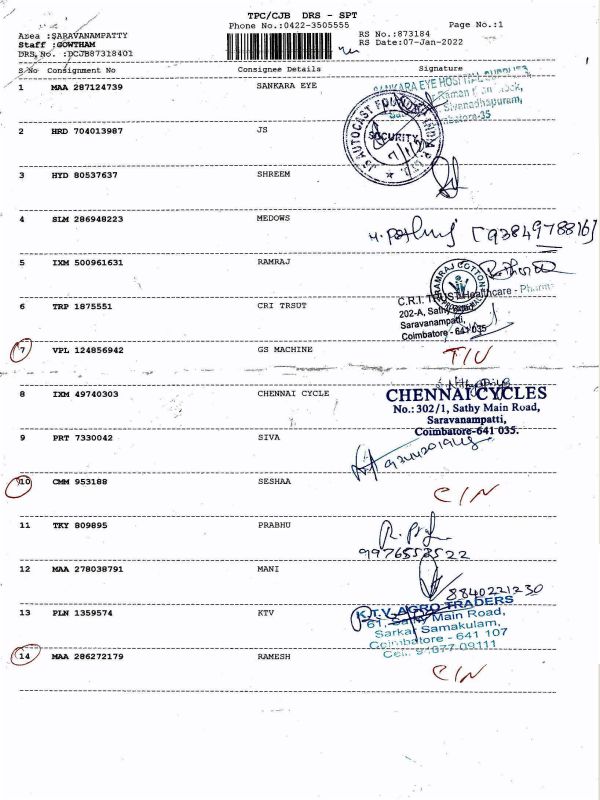 TPC/CJB DRS - SPT
Phone No.:0422-3505555 Page No.:1
Area :SARAVANAMPATTY RS No.:873184
Staff :GOWTHAM RS Date:07-Jan-2022
DRS, No. :DCJB87318401
S/No Consignment No Consignee Details Signature
1 MAA 287124739 SANKARA EYE
SANKARA EYE HOSPITAL
Sivanadhapuram,
2 HRD 704013987 JS
JS AUTOCAST FOUNDRY INDIA P. LTD.
SECURITY
3 HYD 80537637 SHREEM
4 SLM 286948223 MEDOWS
[9384978816]
5 IXM 500961631 RAMRAJ
RAMRAJ COTTON
6 TRP 1875551 CRI TRSUT
C.R.I. TRUST Healthcare - Pharma
202-A, Sathy Road,
Saravanampatti,
Coimbatore - 641 035
7 VPL 124856942 GS MACHINE T/U
8 IXM 49740303 CHENNAI CYCLE
CHENNAI CYCLES
No.: 302/1, Sathy Main Road,
Saravanampatti,
Coimbatore-641 035.
9 PRT 7330042 SIVA
10 CMM 953188 SESHAA C/N
11 TKY 809895 PRABHU
12 MAA 278038791 MANI
8840221230
13 PLN 1359574 KTV
K.T.V. AGRO TRADERS
61, Sathy Main Road,
Sarkar Samakulam,
Coimbatore - 641 107
Cell: 91677 09111
14 MAA 286272179 RAMESH C/N